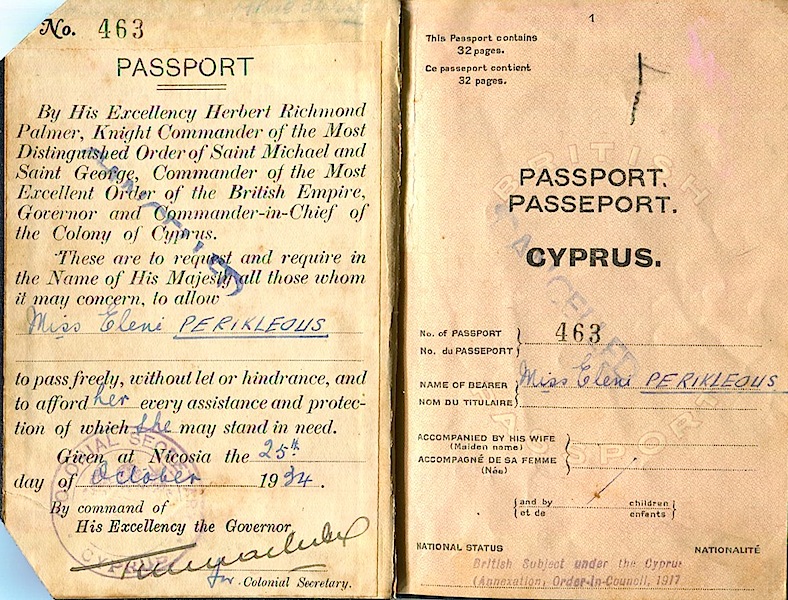 No. 463
PASSPORT
By His Excellency Herbert Richmond
Palmer, Knight Commander of the Most
Distinguished Order of Saint Michael and
Saint George, Commander of the Most
Excellent Order of the British Empire,
Governor and Commander-in-Chief of
the Colony of Cyprus.
These are to request and require in
the Name of His Majesty all those whom
it may concern, to allow
Miss Eleni PERIKLEOUS
to pass freely, without let or hindrance, and
to afford her every assistance and protec-
tion of which she may stand in need.
Given at Nicosia the 25th
day of October 1934.
By command of
His Excellency the Governor,
for Colonial Secretary.
COLONIAL SECRETARY
CYPRUS
CANCELLED
1
This Passport contains
32 pages.
Ce passeport contient
32 pages.
BRITISH
PASSPORT.
PASSEPORT.
CYPRUS.
CANCELLED
No. of PASSPORT 463
No. du PASSEPORT
NAME OF BEARER Miss Eleni PERIKLEOUS
NOM DU TITULAIRE
PASSPORT
ACCOMPANIED BY HIS WIFE
(Maiden name)
ACCOMPAGNÉ DE SA FEMME
(Née)
and by children
et de enfants
NATIONAL STATUS NATIONALITÉ
British Subject under the Cyprus
(Annexation) Order-in-Council, 1917